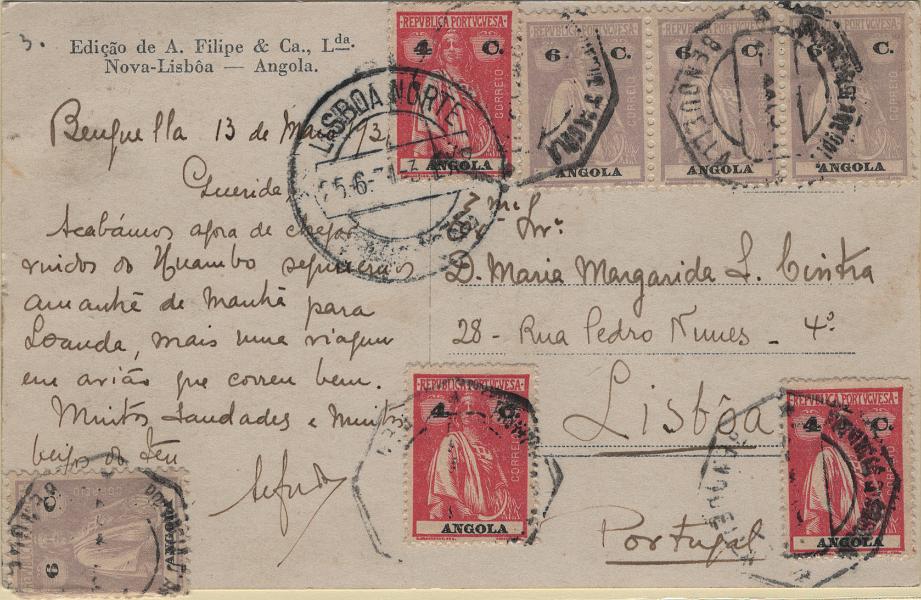 3.
Edição de A. Filipe & Ca., Lda.
Nova-Lisbôa — Angola.
Benguella 13 de 193
Querida
Acabámos agora de chegar
vindos do Huambo seguiremos
amanhã de manhã para
Loanda, mais uma viagem
em avião que correu bem.
Muitas saudades e muitos
beijos do teu
REPVBLICA PORTVGVESA
4 C.
CORREIO
ANGOLA
REPVBLICA PORTVGVESA
6 C.
CORREIO
ANGOLA
REPVBLICA PORTVGVESA
6 C.
CORREIO
ANGOLA
REPVBLICA PORTVGVESA
6 C.
CORREIO
ANGOLA
LISBOA NORTE
25-6-31
BENGUELLA
Exma Sra
D. Maria Margarida S. Cintra
28 - Rua Pedro Nunes - 4º
Lisbôa
Portugal
REPVBLICA PORTVGVESA
4 C.
CORREIO
ANGOLA
REPVBLICA PORTVGVESA
4 C.
CORREIO
ANGOLA
6 C.
CORREIO